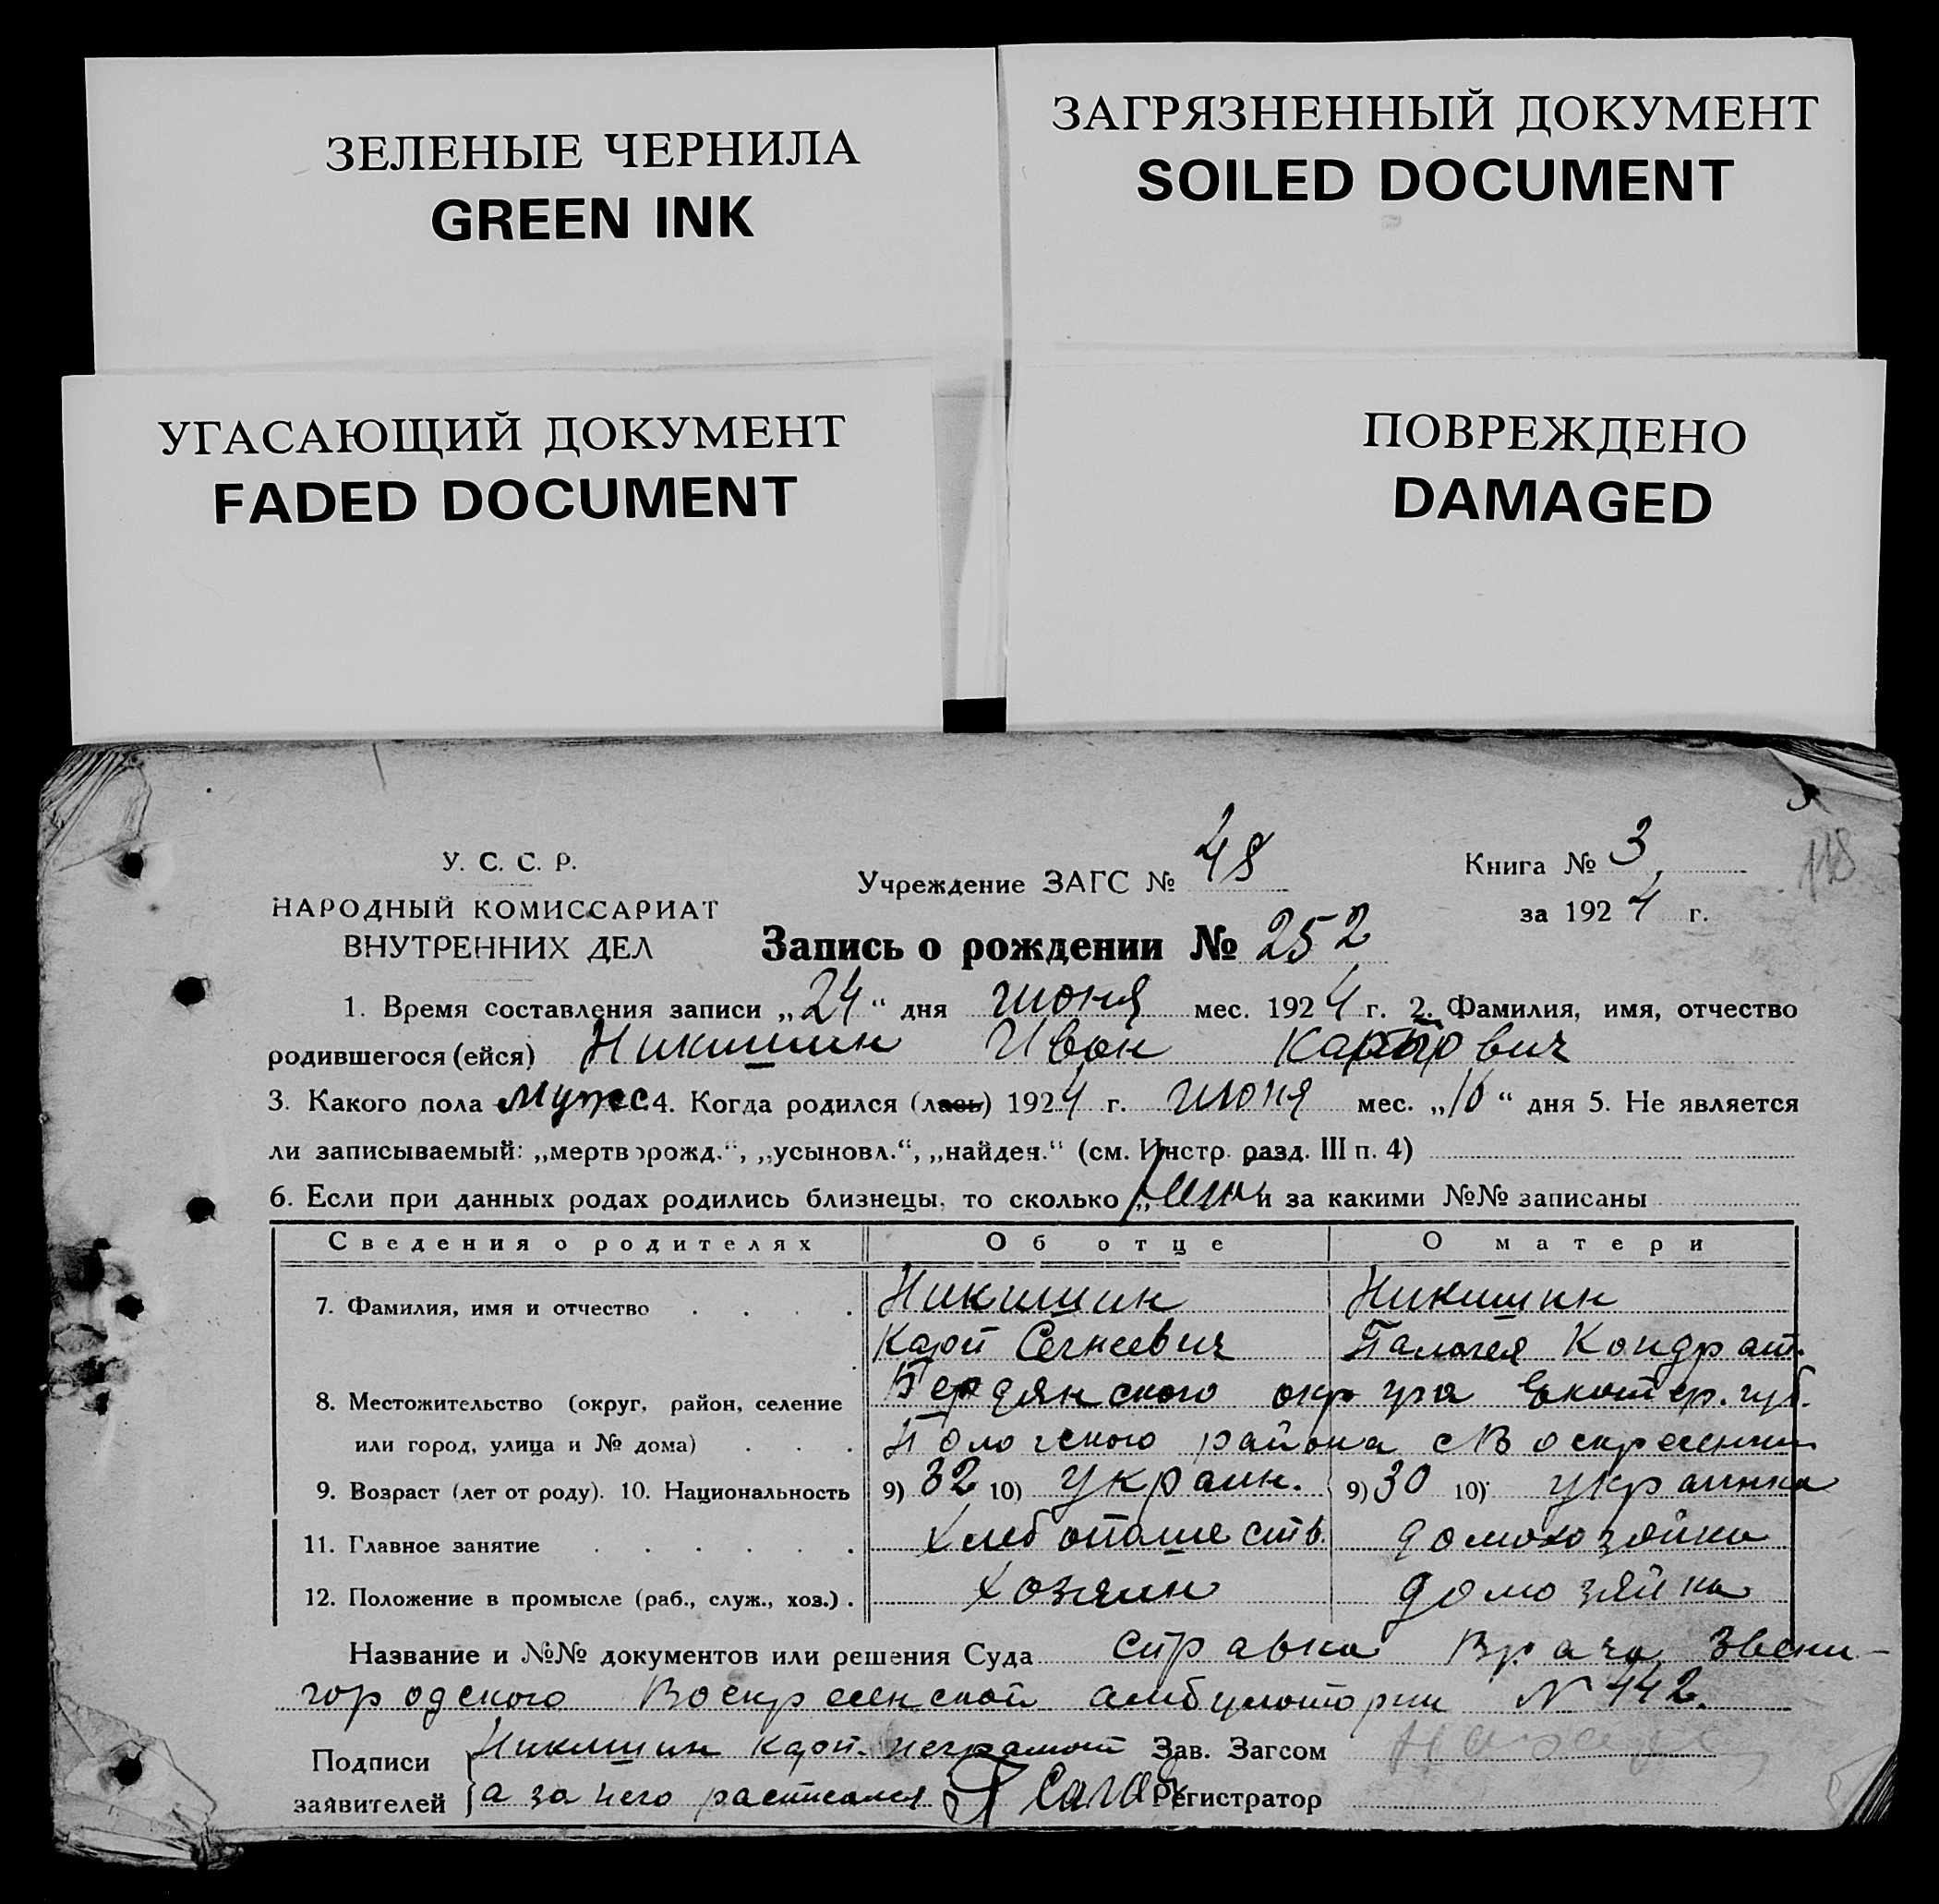 ЗЕЛЕНЫЕ ЧЕРНИЛА
GREEN INK
ЗАГРЯЗНЕННЫЙ ДОКУМЕНТ
SOILED DOCUMENT
УГАСАЮЩИЙ ДОКУМЕНТ
FADED DOCUMENT
ПОВРЕЖДЕНО
DAMAGED
118
У. С. С. Р.
НАРОДНЫЙ КОМИССАРИАТ
ВНУТРЕННИХ ДЕЛ
Учреждение ЗАГС № 48
Книга № 3
за 1924 г.
Запись о рождении № 252
1. Время составления записи „24“ дня июня мес. 1924 г. 2. Фамилия, имя, отчество
родившегося (ейся) Никишин Иван Карпович
3. Какого пола мужс. 4. Когда родился (лась) 1924 г. июня мес. „16“ дня 5. Не является
ли записываемый: „мертворожд.“, „усыновл.“, „найден.“ (см. Инстр. разд. III п. 4)
6. Если при данных родах родились близнецы, то сколько и за какими №№ записаны
Сведения о родителях Об отце О матери
7. Фамилия, имя и отчество Никишин Никишин
Карп Сегнеевич Палагея Кондрат.
8. Местожительство (округ, район, селение Бердянского округа Екатер. губ.
или город, улица и № дома) Пологского района с Воскресенки
9. Возраст (лет от роду). 10. Национальность 9) 32 10) Украин. 9) 30 10) украинка
11. Главное занятие Хлебопашеств. домохозяйка
12. Положение в промысле (раб., служ., хоз.) хозяин домозяйка
Название и №№ документов или решения Суда справка Врача Звени-
городского Воскресенской амбулатории N 442.
Подписи Никишин Карп. неграмот Зав. Загсом
заявителей а за него расписался Регистратор